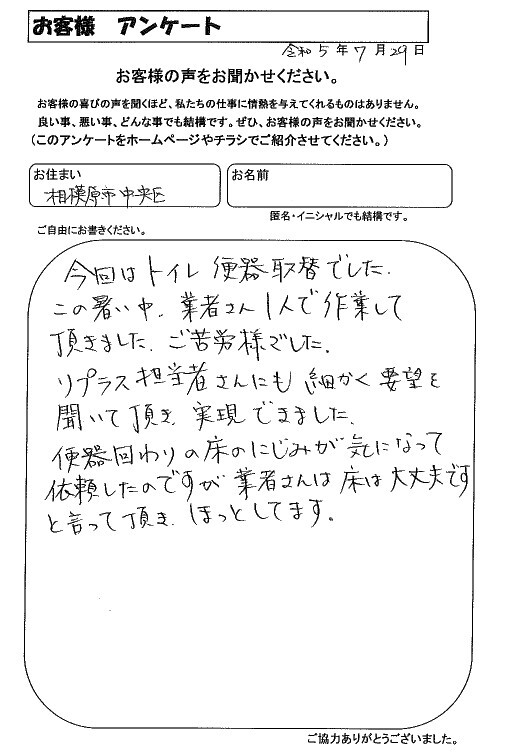 お客様 アンケート
令和5年7月29日
お客様の声をお聞かせください。
お客様の喜びの声を聞くほど、私たちの仕事に情熱を与えてくれるものはありません。
良い事、悪い事、どんな事でも結構です。ぜひ、お客様の声をお聞かせください。
(このアンケートをホームページやチラシでご紹介させてください。)
お住まい
相模原市中央区
お名前
匿名・イニシャルでも結構です。
ご自由にお書きください。
今回はトイレ便器取替でした.
この暑い中.業者さん1人で作業して
頂きました.ご苦労様でした.
リプラス担当者さんにも細かく要望を
聞いて頂き.実現できました.
便器回わりの床のにじみが気になって
依頼したのですが業者さんは床は大丈夫です
と言って頂き.ほっとしてます。
ご協力ありがとうございました。